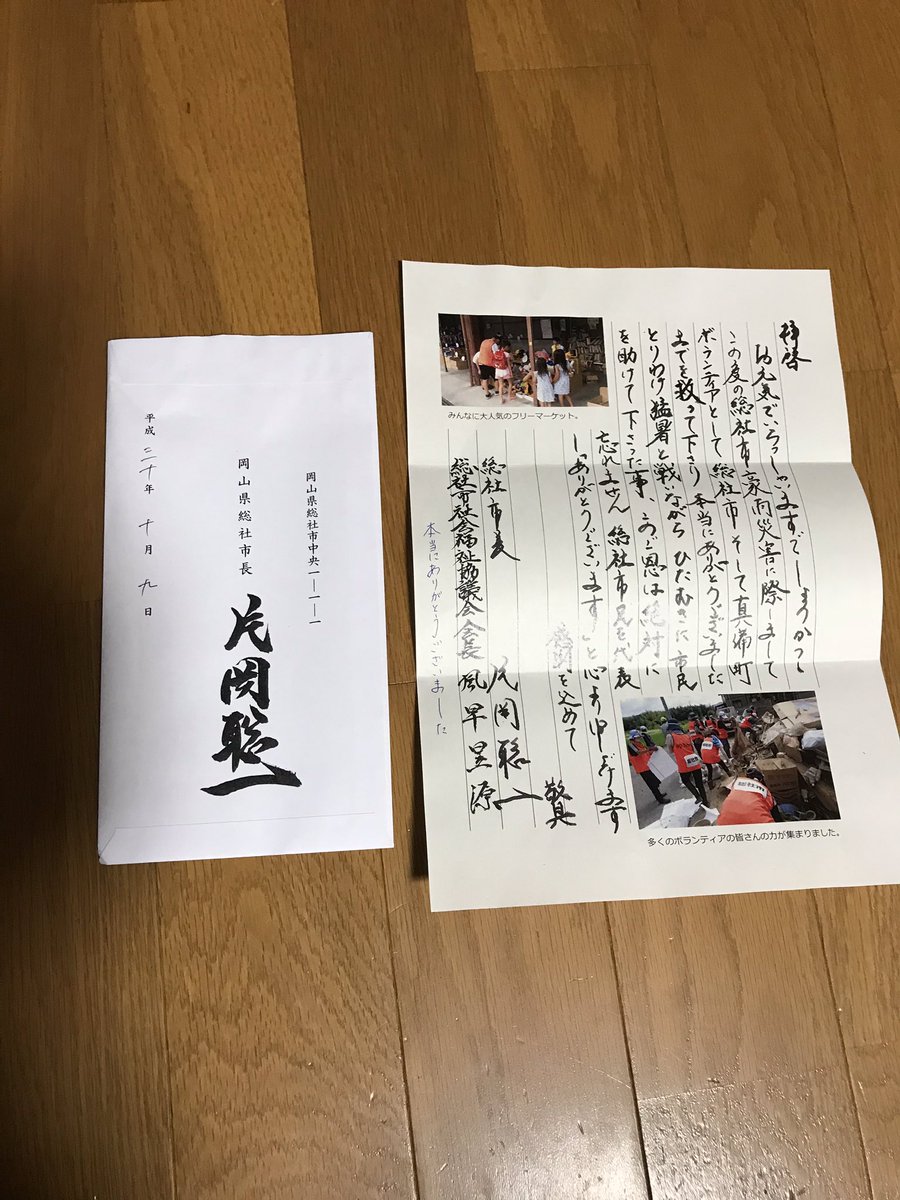 岡山県総社市中央一ー一ー一
岡山県総社市長 片岡聡一
平成三十年十月九日
拝啓
お元気でいらっしゃいますでしょうか
この度の総社市豪雨災害に際しまして
ボランティアとして総社市そして真備町
までを救って下さり本当にありがとうございました
とりわけ猛暑と戦いながらひたむきに市民
を助けて下さった事、このご恩は絶対に
忘れません 総社市民を代表
し「ありがとうございます」と心より申し上げます
感謝を込めて
敬具
総社市長 片岡聡一
総社市社会福祉協議会会長 風早昱源
本当にありがとうございました
みんなに大人気のフリーマーケット。
多くのボランティアの皆さんの力が集まりました。